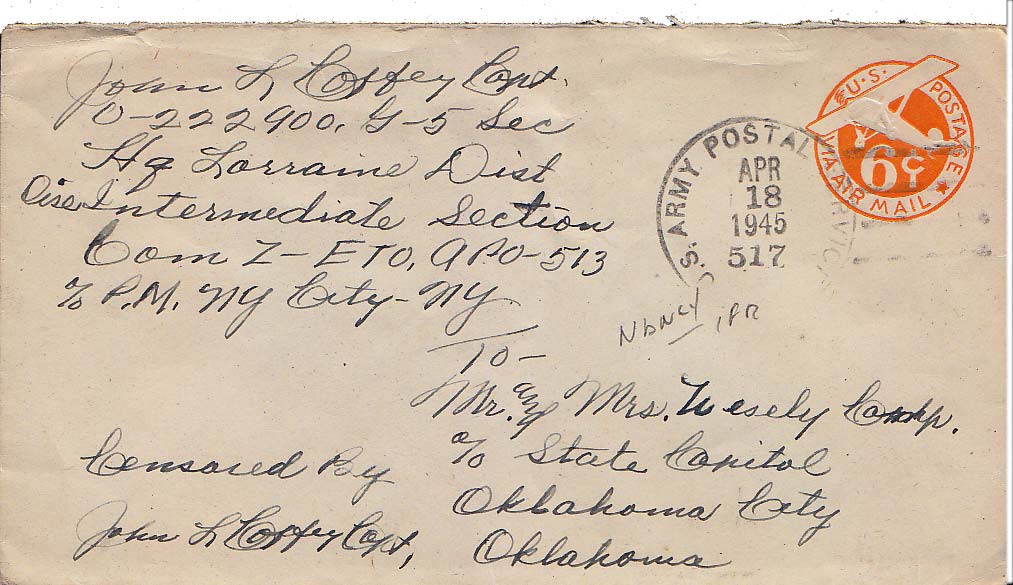 John L Coffey Capt.
O-222900, G-5 Sec
Hq Lorraine Dist
Oise Intermediate Section
Com Z - ETO, APO-513
c/o P.M. NY City - NY
U.S. POSTAGE
VIA AIR MAIL
6¢
U.S. ARMY POSTAL SERVICE
APR
18
1945
517
NANCY, FR
To -
Mr. and Mrs. Wesely Camp.
c/o State Capitol
Oklahoma City
Oklahoma
Censored By
John L Coffey Capt,